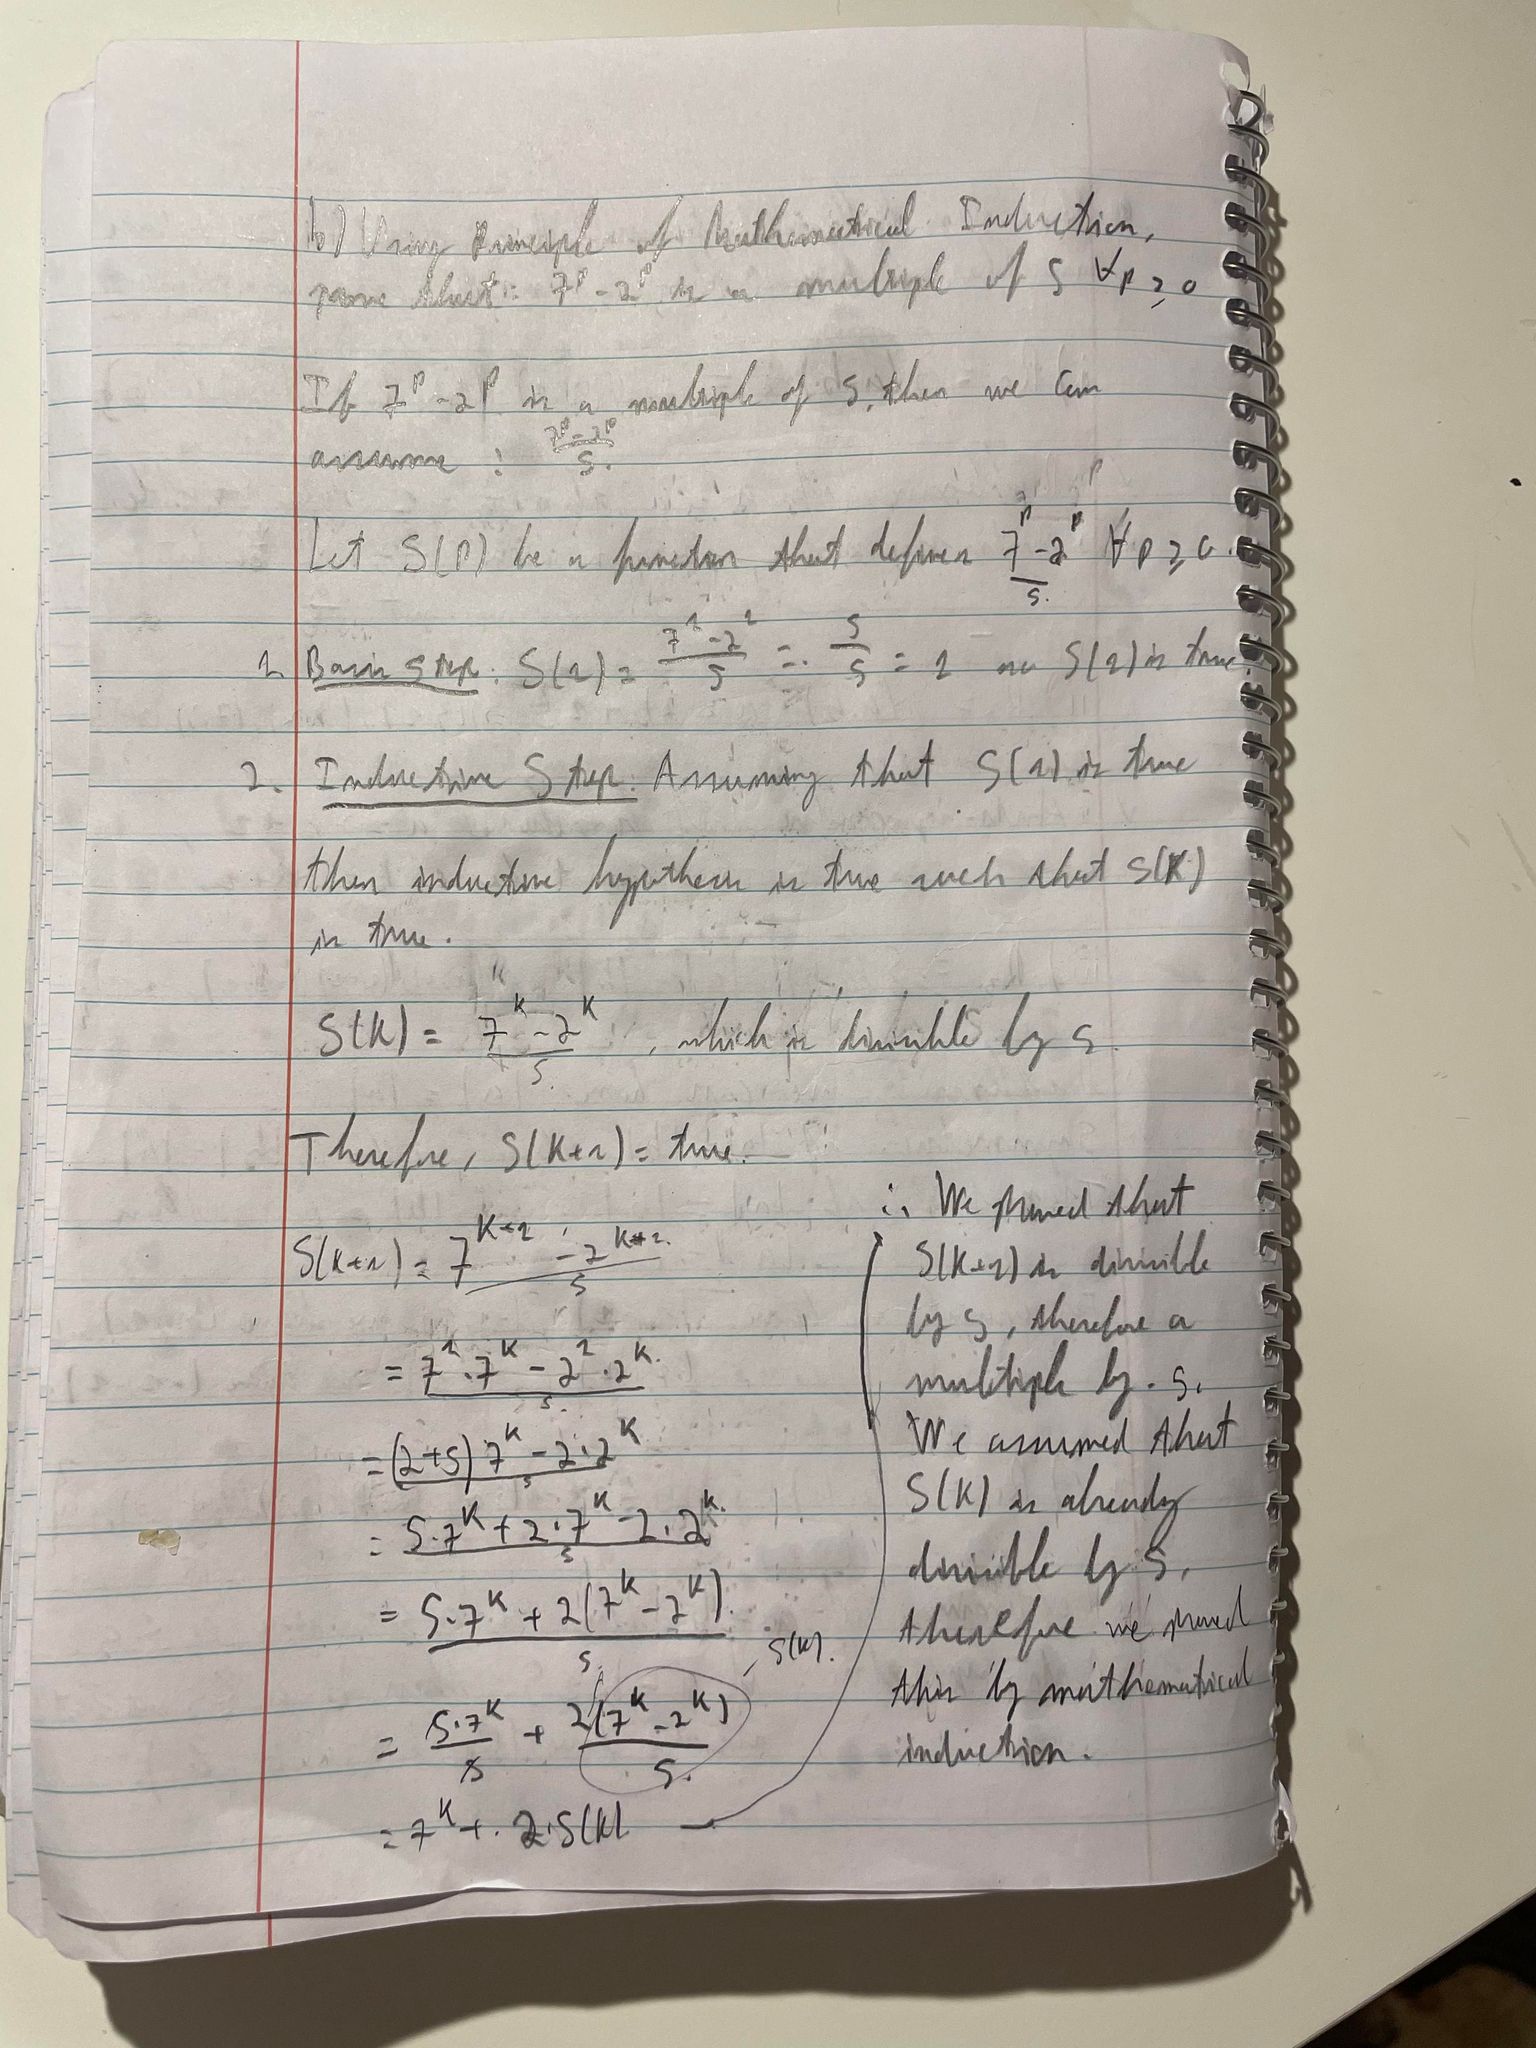 b) Using Principle of Mathematical Induction,
prove that: 7^p - 2^p is a multiple of 5 ∀p ≥ 0
If 7^p - 2^p is a multiple of 5, then we can
assume : (7^p - 2^p)/5.
Let S(p) be a function that defines (7^p - 2^p)/5. ∀p ≥ 0.
1. Basis Step: S(1) = (7^1 - 2^1)/5 = 5/5 = 1 so S(1) is true.
2. Inductive Step: Assuming that S(1) is true
then inductive hypothesis is true such that S(K)
is true.
S(K) = (7^K - 2^K)/5. , which is divisible by 5.
Therefore, S(K+1) = true.
S(K+1) = (7^(K+1) - 2^(K+1))/5
= (7^1 · 7^K - 2^1 · 2^K)/5.
= ((2+5) 7^K - 2·2^K)/5
= (5·7^K + 2·7^K - 2·2^K)/5
= (5·7^K + 2(7^K - 2^K))/5.
= 5·7^K/5 + 2(7^K - 2^K)/5. S(K).
= 7^K + 2·S(K)
∴ We proved that
S(K+1) is divisible
by 5, therefore a
multiple by 5.
We assumed that
S(K) is already
divisible by 5,
therefore we proved
this by mathematical
induction.